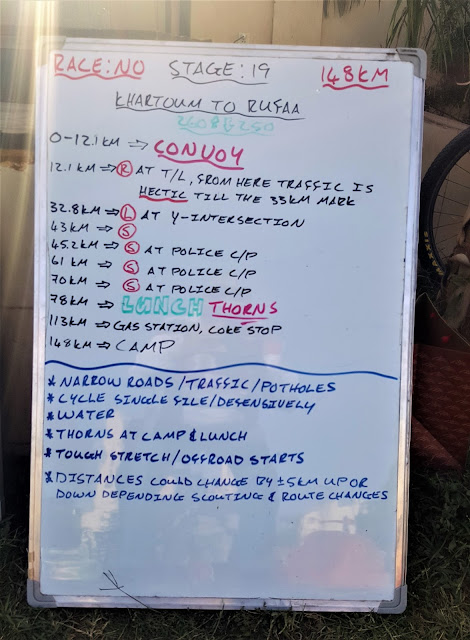 RACE: NO STAGE: 19 148KM
KHARTOUM TO RUFAA
0-12.1KM ⇒ CONVOY
12.1KM ⇒ R AT T/L, FROM HERE TRAFFIC IS
HECTIC TILL THE 33KM MARK
32.8KM ⇒ L AT Y-INTERSECTION
43KM ⇒ S
45.2KM ⇒ S AT POLICE C/P
61KM ⇒ S AT POLICE C/P
70KM ⇒ S AT POLICE C/P
78KM ⇒ LUNCH THORNS
113KM ⇒ GAS STATION, COKE STOP
148KM ⇒ CAMP
* NARROW ROADS/TRAFFIC/POTHOLES
* CYCLE SINGLE FILE/DEFENSIVELY
* WATER
* THORNS AT CAMP & LUNCH
* TOUGH STRETCH/OFFROAD STARTS
* DISTANCES COULD CHANGE BY ±5KM UP OR
DOWN DEPENDING SCOUTING & ROUTE CHANGES